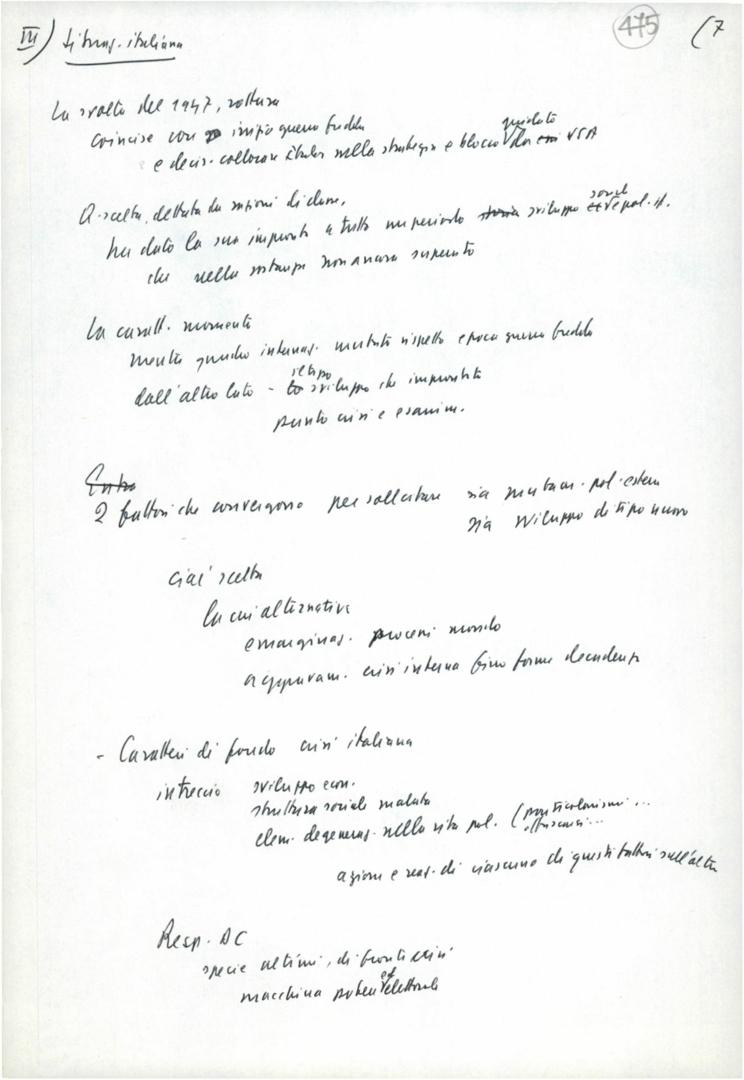 III) Situaz. italiana
475 (7
La svolta del 1947, rottura
coincise con inizio guerra fredda
e decis. collocare Italia nella strategia e blocco guidato da USA
Q. scelta, dettata da ragioni di classe,
ha dato la sua impronta a tutto un periodo sviluppo social e pol. it.
che nella sostanza non ancora superato
La caratt. momento
mentre quadro internaz. mutato rispetto epoca guerra fredda
dall'altro lato - il tipo sviluppo che improntato
punto crisi e esaurim.
Entro
2 fattori che convergono per sollecitare sia mutam. pol. estera
sia sviluppo di tipo nuovo
Cioè scelta
la cui alternativa
emarginaz. processi mondo
aggravam. crisi interna fino forme decadenza
- Caratteri di fondo crisi italiana
intreccio sviluppo econ.
struttura sociale malata
elem. degeneraz. nella vita pol. (particolarismi...
azione e reaz. di ciascuno di questi fattori sull'altro
Resp. DC
specie ultimi, di fronte crisi
macchina potere ed elettorale